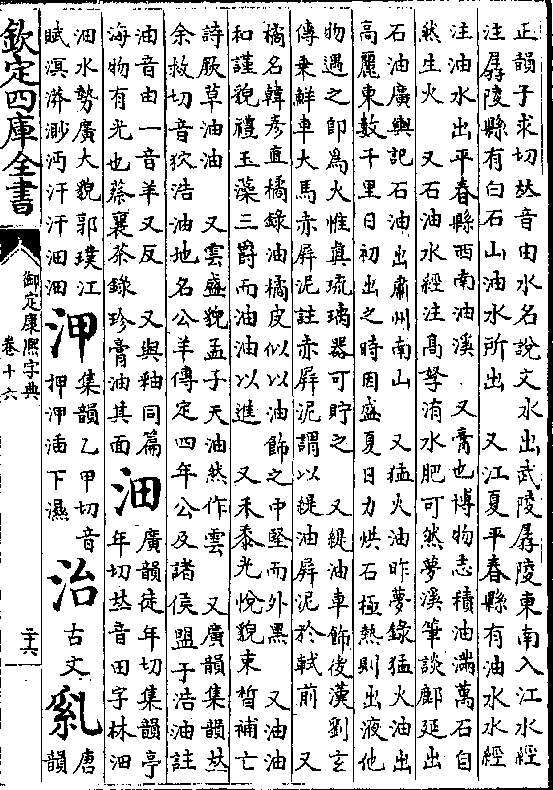 正韻于求切𠀤音由水名說文水出武陵孱陵東南入江水經
注孱陵縣有白石山油水所出　又江夏平春縣有油水水經
注油水出平春縣西南油溪　又膏也博物志積油滿萬石自
然生火　又石油水經注高孥洧水肥可然夢溪筆談鄜延出
石油廣輿記石油出肅州南山　又猛火油昨夢錄猛火油出
高麗東數千里日初出之時因盛夏日力烘石極熱則出液他
物遇之即爲火惟眞琉璃器可貯之　又緹油車飾後漢劉玄
傳乗鮮車大馬赤屛泥註赤屛泥謂以緹油屛泥於軾前　又
橘名韓彦直橘錄油橘皮似以油飾之中堅而外黑　又油油
和謹貌禮玉藻三爵而油油以進　又禾黍光悅貌束晳補亡
詩厥草油油　又雲盛貌孟子天油然作雲　又廣韻集韻𠀤
余救切音狖浩油地名公羊傳定四年公及諸侯盟于浩油註
油音由一音羊又反　又與釉同篇
海物有光也蔡襄茶錄珍膏油其面
沺
廣韻徒年切集韻亭
年切𠀤音田字林沺
沺水勢廣大貌郭璞江
賦溟漭渺沔汗汗沺沺
㳌
集韻乙甲切音
押㳌㴙下濕
治
古文
乿
唐
韻
欽定四庫全書
御定康熙字典
卷十六
二十六